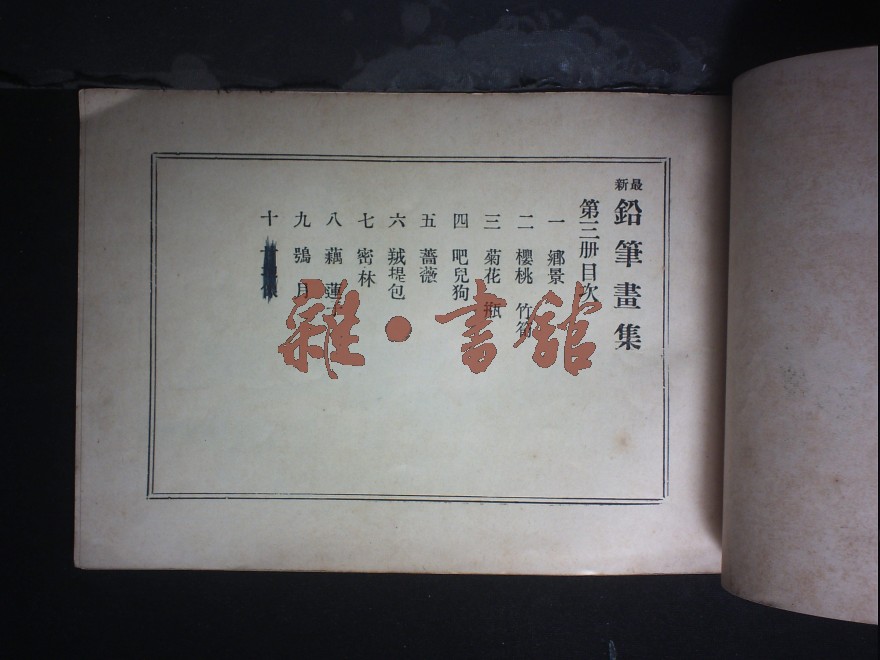 最新
鉛筆畫集
第三册目次
一 鄉景
二 櫻桃 竹筍
三 菊花 瓶
四 吧兒狗
五 薔薇
六 羢提包
七 密林
八 藕 蓮
九 鴞 月
十
雜·書館